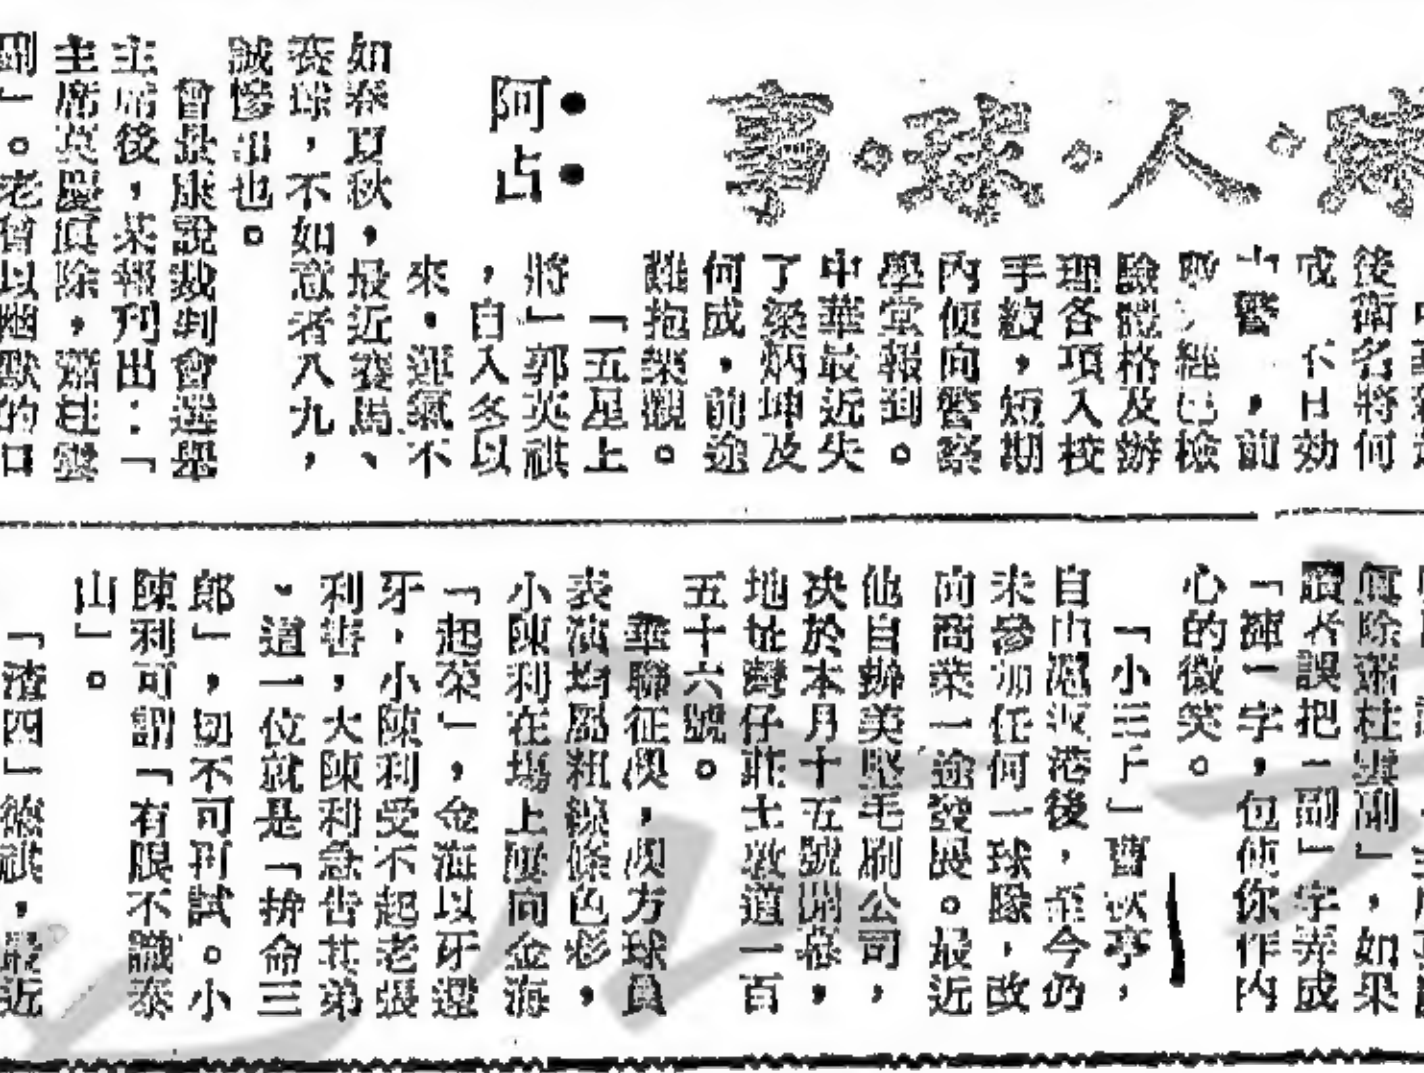 球·人·球·事
·阿·占
後衛名將何
戒 不日効
警,前
經已檢
驗體格及辦
理各項入校
手續,短期
內便向警察
學堂報到。
中華最近失
了梁炳坤及
何成,前途
難抱樂觀。
「五星上
將」郭英祺
,自入冬以
來,運氣不
如春夏秋,最近賽馬、
賽球,不如意者八九,
誠慘事也。
曾景康說裁判會選舉
主席後,某報刊出:「
主席英慶眞除,蕭柱雲
副」。老曾以幽默的口
眞除蕭柱雲副」,如果
讀者誤把「副」字弄成
「褲」字,包慎你作內
心的微笑。
「小三子」曹秋亭,
自由滬返港後,至今仍
未參加任何一球隊,改
向商業一途發展。最近
他自辦美堅毛刷公司,
决於本月十五號開幕,
地址灣仔莊士敦道一百
五十六號。
華聯征澳,澳方球員
表演均屬粗線條色彩,
小陳利在塲上度向金海
「起菜」,金海以牙還
牙,小陳利受不起老張
利害,大陳利急告其弟
,道一位就是「拚命三
郎」,切不可再試。小
陳利可謂「有眼不識泰
山」。
「渣四」德祺,最近